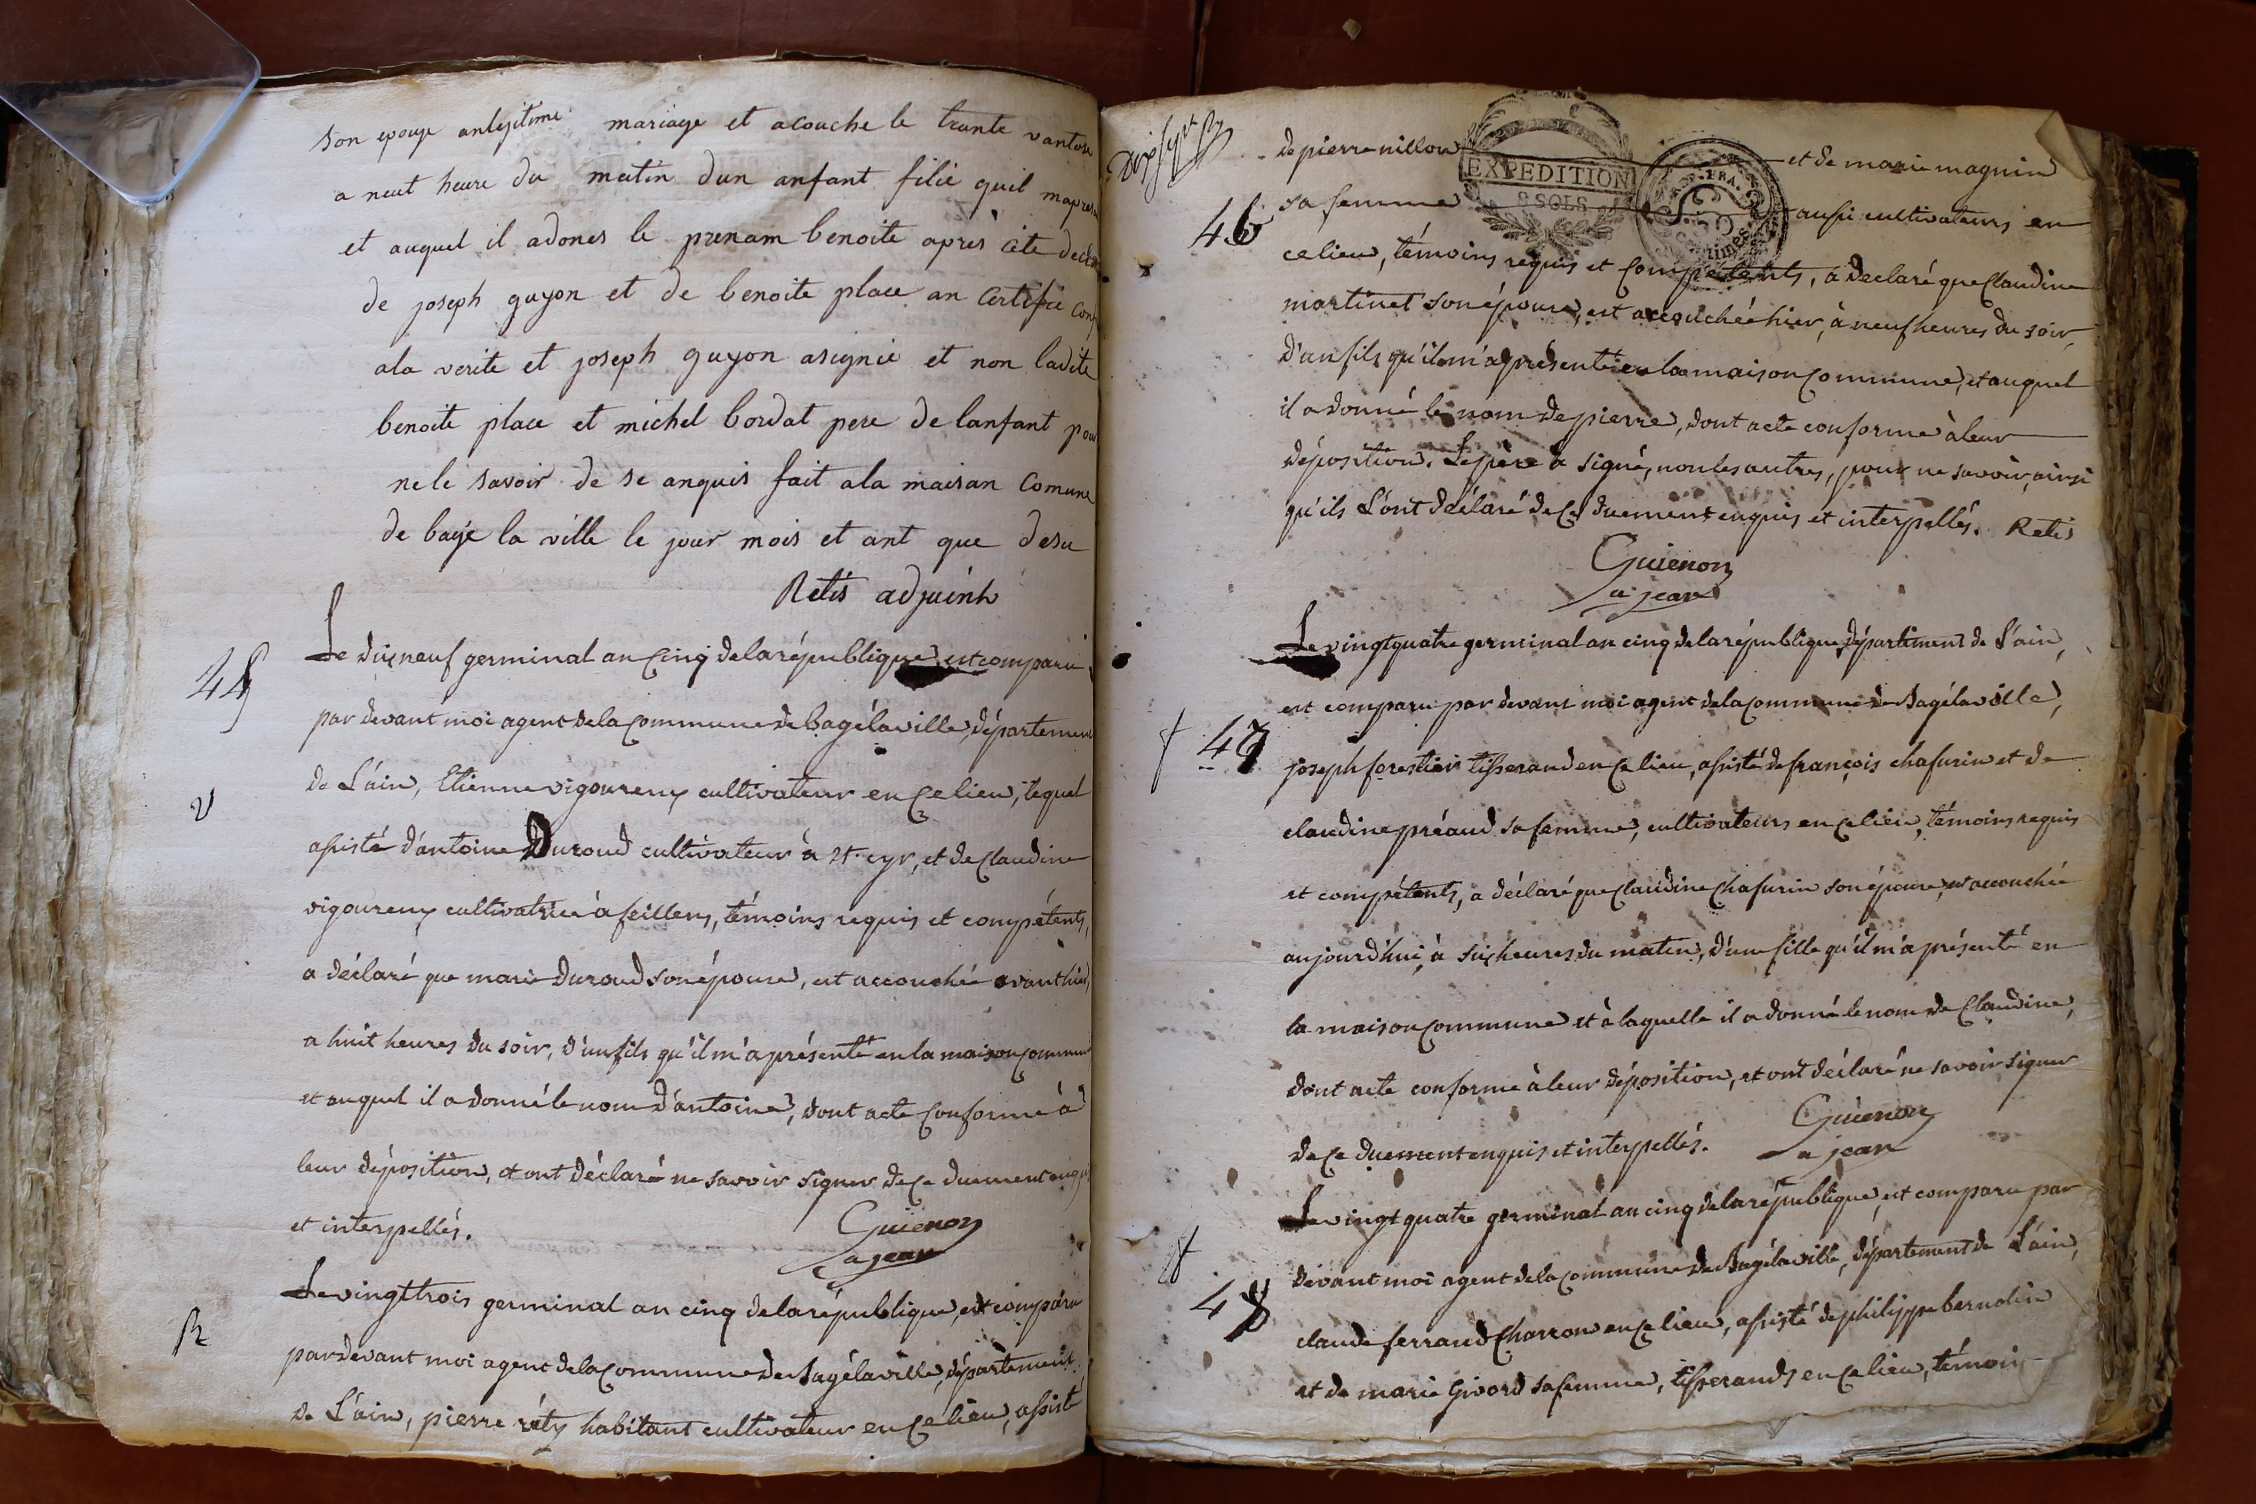 son epouje anlejitime mariage et acouche le trante vantose
a neut heure du matin dun anfant filie quil mapresa
et auquel il adones le prenam benoite après cete decla
de joseph guyon et de benoite place an Certifie Conf
ala verite et joseph guyon asignie et non ladite
benoite place et michel bordat pere de lanfant pour
nele savoir de se anquis fait ala maisan Comune
de baije la ville le jour mois et ant que desu
Retis adjuinh
45
Le dix neuf germinal an cinq de la république est comparu
par devant moi agent de la Commune de Bagélaville, département
de L'ain, Etienne vigoureux cultivateur en ce lieu, lequel
v
assisté d'antoine Duroud cultivateur à St. cyr, et de Claudine
vigoureux cultivatrice à feillens, témoins requis et compétents,
a déclaré que marie Duroud son épouse, est accouchée avanthier,
a huit heures du soir, d'un fils qu'il m'a présenté en la maison commune
et auquel il a donné le nom d'antoine, dont acte Conforme à
leur déposition, et ont déclaré ne savoir signer de ce duement enquis
et interpellés.
Guienon
a jean
Le vingt trois germinal an cinq de la république, est comparu
R
par devant moi agent de la Commune de Bagélaville, département
de L'ain, pierre réty habitant cultivateur en ce lieu, assisté
de pierre nillon et de marie magnin
EXPEDITION
8 SOLS
46
sa femme aussi cultivateurs en
ce lieu, témoins requis et Compétents, a declaré que Claudine
martinet son épouse, est accouchée hier, à neuf heures du soir,
D'un fils qu'il m'a présenté en la maison Commune, et auquel
il a donné le nom de pierre, dont acte conforme à leur
déposition. Le père a signé, non les autres, pour ne savoir, ainsi
qu'ils L'ont déclaré de ce duement enquis et interpellés. Retis
Guienon
a jean
Le vingt quatre germinal an cinq de la république, département de L'ain,
est comparu par devant moi agent de la Commune de Bagélaville,
47
joseph forestier tisserand en ce lieu, assisté de françois chafurin et de
claudine préaud sa femme, cultivateurs en ce lieu, témoins requis
et compétents, a déclaré que Claudine Chafurin son épouse, est accouchée
aujourd'hui, à six heures du matin, d'une fille qu'il m'a présenté en
la maison Commune et à laquelle il a donné le nom de Claudine,
dont acte conforme à leur déposition, et ont déclaré ne savoir signer
de ce duement enquis et interpellés.
Guienon
a jean
Le vingt quatre germinal an cinq de la république, est comparu par
devant moi agent de la commune de Bagélaville, département de L'ain,
48
claude ferraud Charron en ce lieu, assisté de philippe bernolin
et de marie Givord sa femme, tisserands en ce lieu, témoins